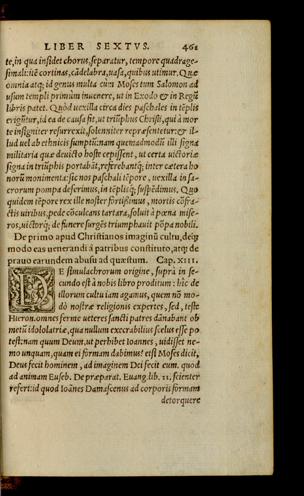 LIBER SEXTVS. 461
te, in qua insidet chorus, separatur, tempore quadrage-
simali: itē cortinas, cādelabra, uasa, quibus utimur. Quæ
omnia atq; id genus multa cum Moses tum Salomon ad
usum templi primùm inuenere, ut in Exodo & in Regū
libris patet. Quòd uexilla circa dies paschales in tēplis
erigūtur, id ea de causa fit, ut triūphus Christi, qui à mor
te insigniter resurrexit, solenniter repræsentetur: & il-
lud uel ab ethnicis sumptū: nam quemadmodū illi signa
militaria quæ deuicto hoste cepissent, ut certa uictoriæ
signa in triūphis portabāt, referebantq; inter cætera ho
norū monimenta: sic nos paschali tēpore, uexilla in sa-
crorum pompa deferimus, in tēplisq; suspēdimus. Quo
quidem tēpore rex ille noster fortißimus, mortis cōfra-
ctis uiribus, pede cōculcans tartara, soluit à pœna mise-
ros, uictorq; de funere surgēs triumphauit pōpa nobili.
De primo apud Christianos imaginū cultu, deq;
modo eas uenerandi à patribus constituto, atq; de
prauo earundem abusu ad quæstum. Cap. XIII.
DE simulachrorum origine, suprà in se-
cundo est à nobis libro proditum: hîc de
illorum cultu iam agamus, quem nō mo-
dò nostræ religionis expertes, sed, teste
Hieron. omnes ferme ueteres sancti patres dānabant ob
metū idololatriæ, qua nullum execrabilius scelus esse po
test: nam quum Deum, ut perhibet Ioannes, uidisset ne-
mo unquam, quam ei formam dabimus? etsi Moses dicit,
Deus fecit hominem, ad imaginem Dei fecit eum. quod
ad animam Euseb. De præparat. Euang. lib. 11. scienter
refert: id quod Ioānes Damascenus ad corporis formam
detorquere